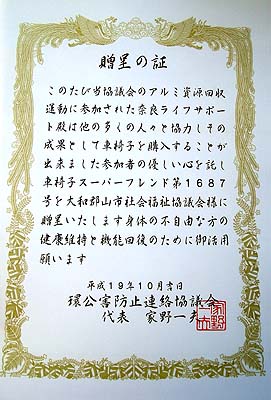 贈呈の証
このたび当協議会のアルミ資源回収
運動に参加された奈良ライフサポー
ト殿は他の多くの人々と協力しその
成果として車椅子を購入することが
出来ました参加者の優しい心を託し
車椅子スーパーフレンド第1687
号を大和郡山市社会福祉協議会様に
贈呈いたします身体の不自由な方の
健康維持と機能回復のために御活用
願います
平成19年10月吉日
環公害防止連絡協議会
代表 家野一夫